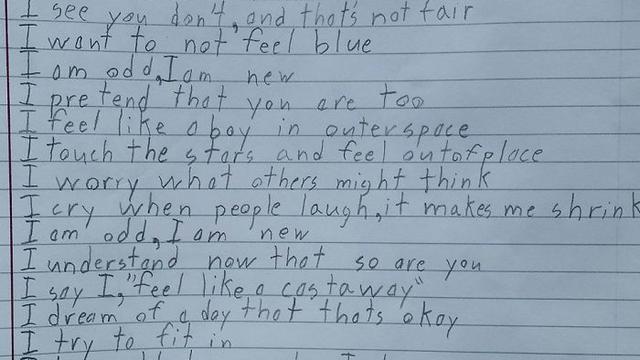 I see you don't, and that's not fair
I want to not feel blue
I am odd, I am new
I pretend that you are too
I feel like a boy in outerspace
I touch the stars and feel outofplace
I worry what others might think
I cry when people laugh, it makes me shrink
I am odd, I am new
I understand now that so are you
I say I, "feel like a castaway"
I dream of a day that thats okay
I try to fit in